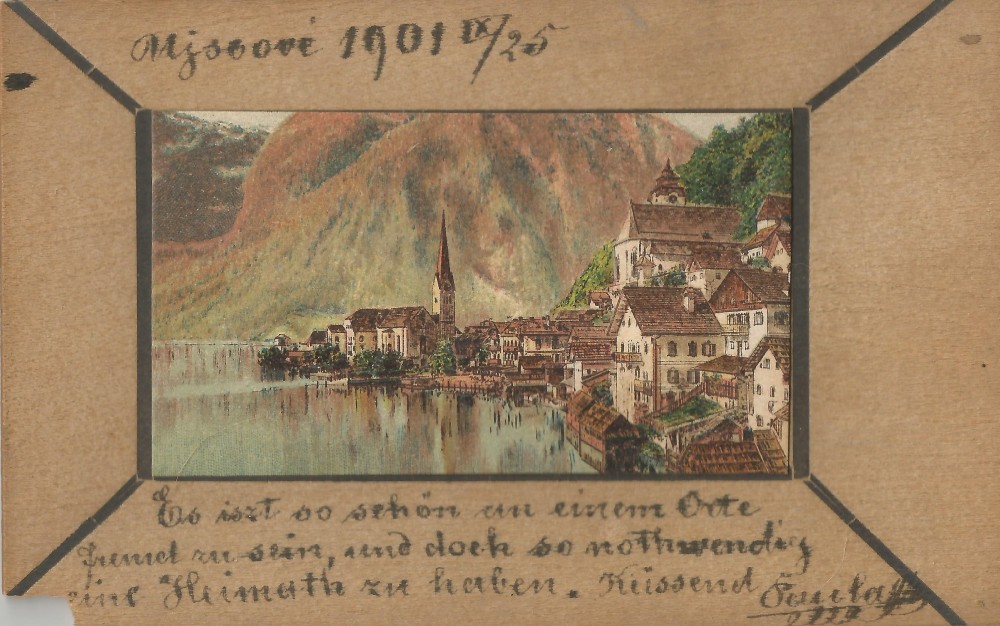 1901 IX/25
Es iszt so schön an einem Orte
fremd zu sein, und doch so nothwendig
eine Heimath zu haben. Küssend Paula